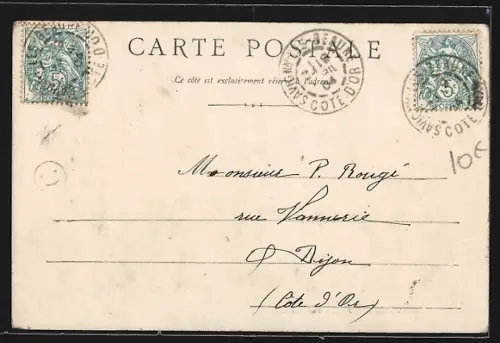 CARTE POSTALE
Ce côté est exclusivement réservé à l'adresse
BEAUNE
CÔTE D'OR
5
10€
Monsieur P. Rougé
rue Vannerie
à Dijon
(Côte d'Or)